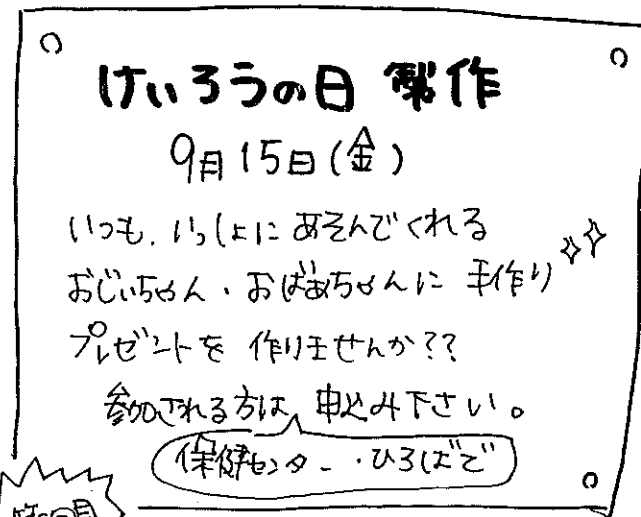 けいろうの日 製作
9月15日(金)
いつも、いっしょにあそんでくれる
おじいちゃん・おばあちゃんに 手作り
プレゼントを 作りませんか??
参加される方は、申込み下さい。
保健センター・ひろばで